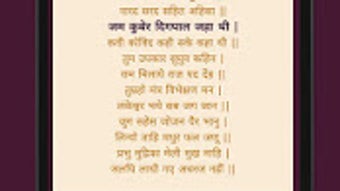 नारद सरद सहित अहिसा ||
जम कुबेर दिगपाल जहा थी |
कवी कोविद कही सके कहा थी ||
तुम उपकार कहिन |
राम मिलाये राज पद देंह ||
तुम्हरो मंत्र विभेक्षण मन |
लंकेश्वर भये सब जग जान ||
जुग सहेस जोजन पैर भानु |
लिल्यो ताहि मधुर फल जणू ||
प्रभु मुद्रिका मेली मुख माहि |
जलधि लांघी गए अचरज नहीं ||